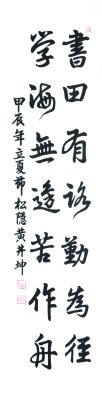 書田有路勤為徑
學海無邊苦作舟
甲辰年立夏節松隱黃井坤